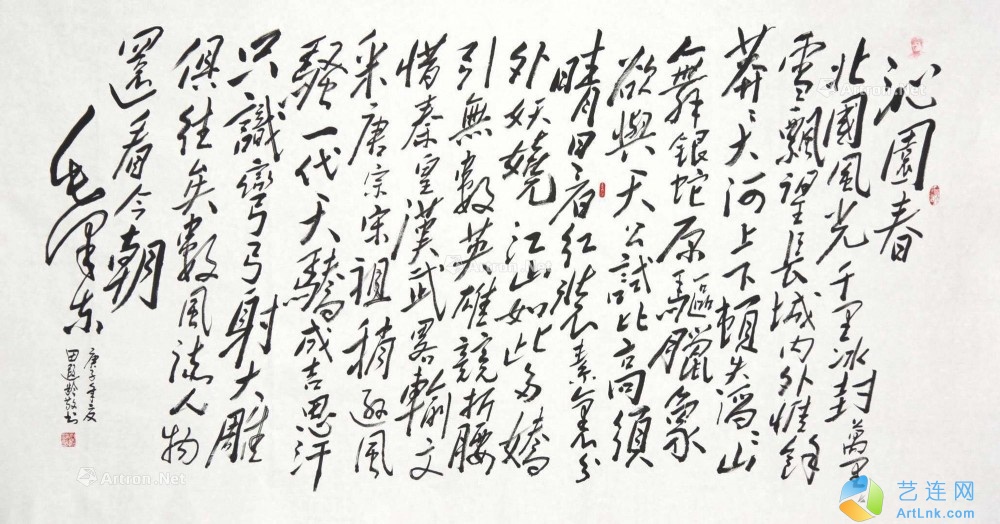 沁園春
北國風光千里冰封萬里
雪飄望長城内外惟餘
莽〻大河上下頓失滔〻山
舞銀蛇原驅臘象
欲與天公試比高須
晴日看紅裝素裹分
外妖嬈江山如此多嬌
引無數英雄競折腰
惜秦皇漢武略輸文
采唐宗宋祖稍遜風
騷一代天驕成吉思汗
只識彎弓射大雕
俱往矣數風流人物
還看今朝
毛澤東
庚子年夏
田齡敬书
Artron.Net
Artron.Net
Artron.Net
Artron.Net
艺连网
ArtLnk.com